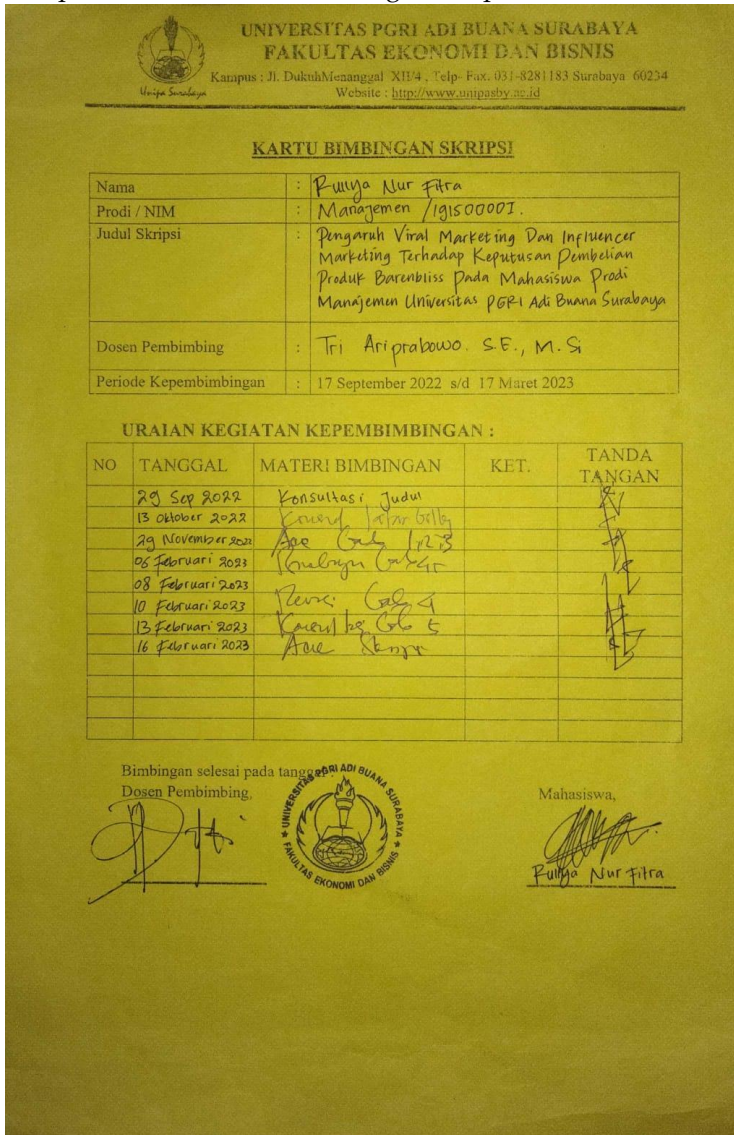 UNIVERSITAS PGRI ADI BUANA SURABAYA
FAKULTAS EKONOMI DAN BISNIS
Kampus : Jl. DukuhMenanggal XII/4 , Telp- Fax. 031-8281183 Surabaya 60234
Website : http://www.unipasby.ac.id
Unipa Surabaya
KARTU BIMBINGAN SKRIPSI
Nama : Nur Fitra
Prodi / NIM : Manajemen /191500001.
Judul Skripsi : Pengaruh Viral Marketing Dan Influencer
Marketing Terhadap Keputusan Pembelian
Produk Barenbliss Pada Mahasiswa Prodi
Manajemen Universitas PGRI Adi Buana Surabaya
Dosen Pembimbing : Tri Ariprabowo. S.E., M.Si
Periode Kepembimbingan : 17 September 2022 s/d 17 Maret 2023
URAIAN KEGIATAN KEPEMBIMBINGAN :
NO TANGGAL MATERI BIMBINGAN KET. TANDA
TANGAN
29 Sep 2022 Konsultasi Judul
13 Oktober 2022
29 November 2022 Acc Bab 1,2,3
06 Februari 2023
08 Februari 2023
10 Februari 2023 Revisi Bab 4
13 Februari 2023 Bab 5
16 Februari 2023 Acc Skripsi
Bimbingan selesai pada tanggal :
Dosen Pembimbing,
Mahasiswa,
UNIVERSITAS PGRI ADI BUANA SURABAYA
FAKULTAS EKONOMI DAN BISNIS
Nur Fitra